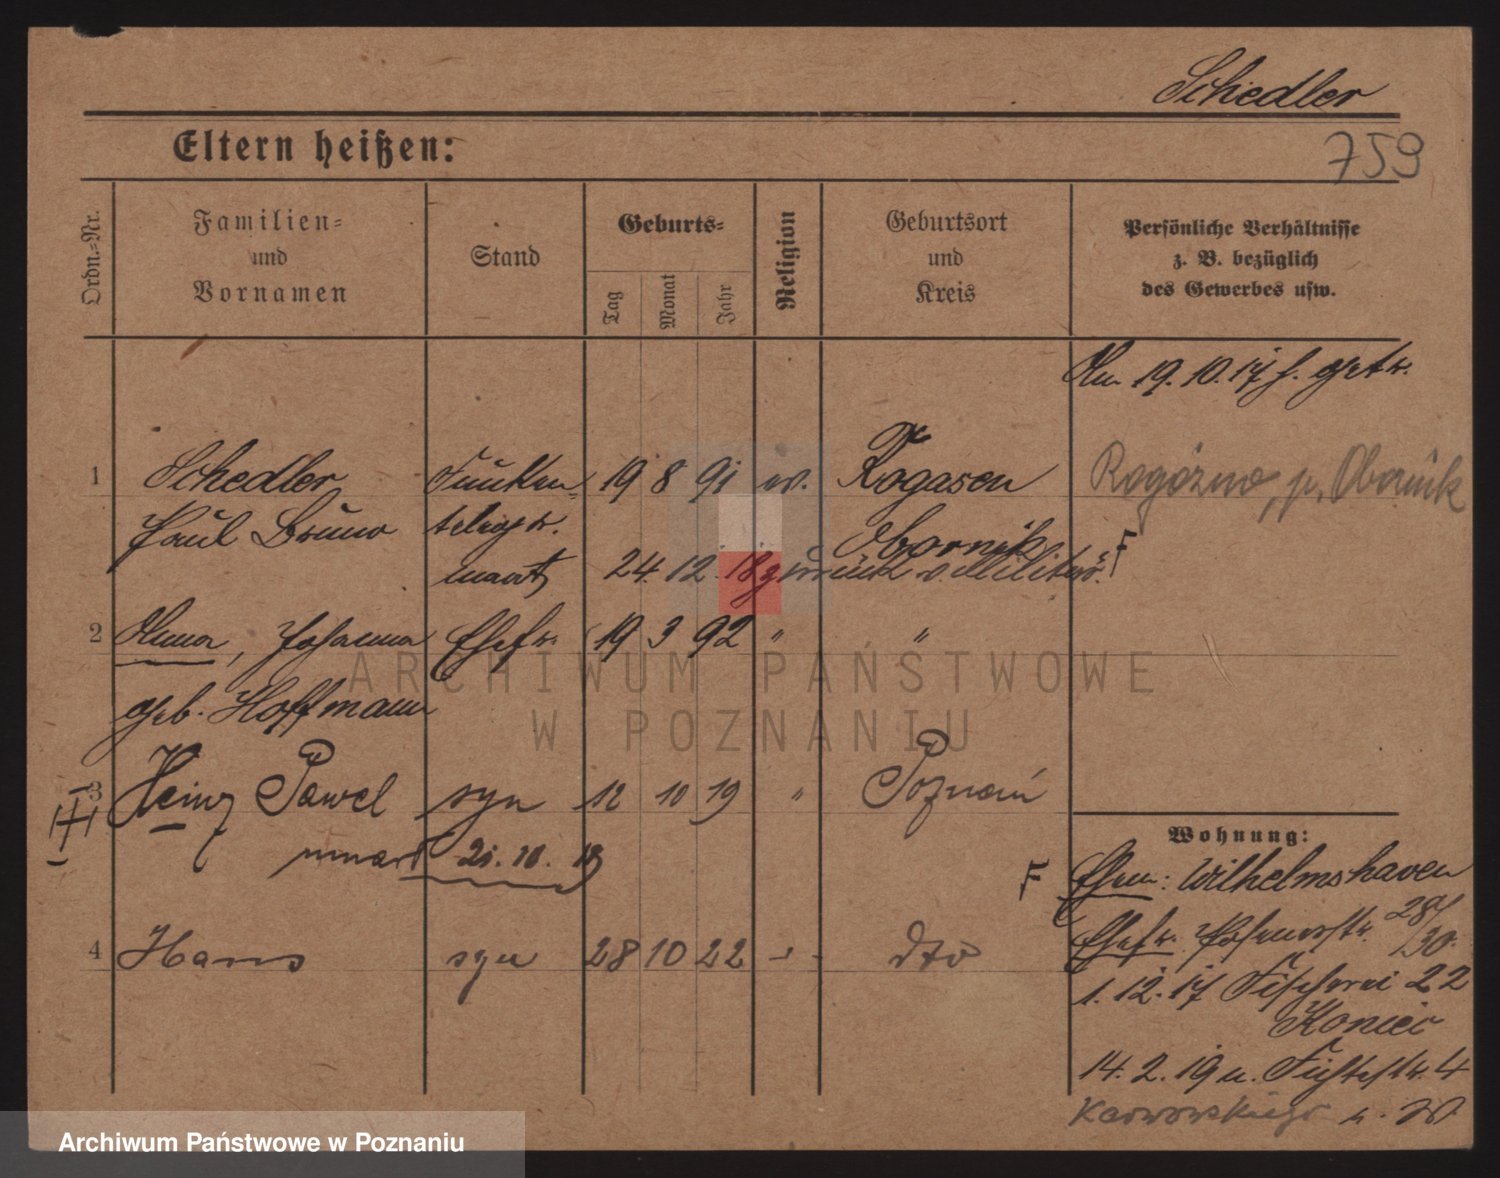 Schedler
Eltern heißen:
759
Ordn.=Nr.
Familien=
und
Vornamen
Stand
Geburts=
Tag
Monat
Jahr
Religion
Geburtsort
und
Kreis
Persönliche Verhältnisse
z. B. bezüglich
des Gewerbes usw.
19. 10. 17 getr.
1 Schedler Funken= 19 8 91 ev. Rogasen Rogóźno, p. Obornik
Paul Bruno telegr. Obornik F
maat 24. 12. 18 zurück v. Militär.
2 Anna, Johanna Ehefr. 19 3 92 " "
geb. Hoffmann
3 Heinz Pawel syn 12 10 19 " Poznań
umarł 21. 10. 19
4 Hans syn 28 10 22 dto
Wohnung:
F Ehem: Wilhelmshaven
Ehefr. 28/30.
1. 12. 17 Fischerei 22
Koniec
14. 2. 19 u. Fichtestr. 4
Karwowskiego
ARCHIWUM PAŃSTWOWE
W POZNANIU
Archiwum Państwowe w Poznaniu